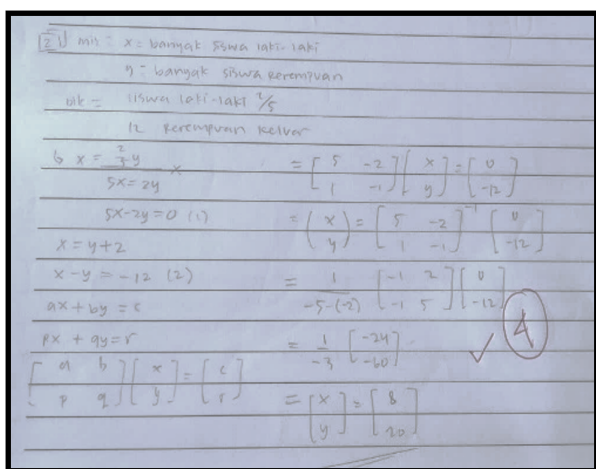 [2] mis = x = banyak siswa laki-laki
y = banyak siswa perempuan
dik = siswa laki-laki 2/5
12 perempuan keluar
6 x = 2/3 y x
5x = 2y
5x-2y=0 (1)
x = y+2
x-y = -12 (2)
ax + by = c
px + qy = r
[a b / p q] [x / y] = [c / r]
= [5 -2 / 1 -1] [x / y] = [0 / -12]
= (x / y) = [5 -2 / 1 -1]^-1 [0 / -12]
= 1 / -5-(-2) [-1 2 / -1 5] [0 / -12]
= 1 / -3 [-24 / -60]
✓ 4
= [x / y] = [8 / 20]